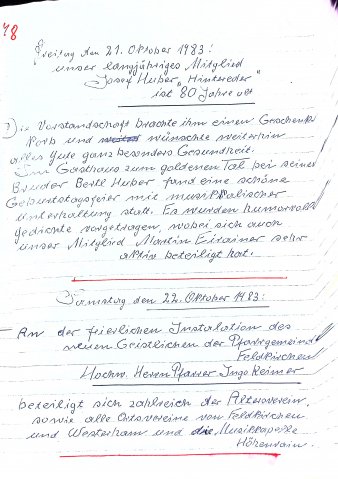 48
Freitag den 21. Oktober 1983:
unser langjähriges Mitglied
Josef Huber "Hintereder"
ist 80 Jahre alt
Die Vorstandschaft brachte ihm einen Geschenk
Korb und wünschte weiterhin
alles Gute ganz besonders Gesundheit.
Im Gasthaus zum goldenen Tal bei seiner
Bruder Bertl Huber fand eine schöne
Geburtstagsfeier mit musikalischer
Unterhaltung statt. Es wurden humorvolle
gedichte vorgetragen, wobei sich auch
unser Mitglied Martin Eirainer sehr
aktiv beteiligt hat.
Samstag den 22. Oktober 1983:
An der feierlichen Instalation des
neuen Geistlichen der Pfarrgemeind
Feldkirchen
Hochw. Herrn Pfarrer Ingo Reimer
beteiligt sich zahlreich der Altersverein,
sowie alle Ortsvereine von Feldkirchen
und Westerham und die Musikkapelle
Höhenrain.